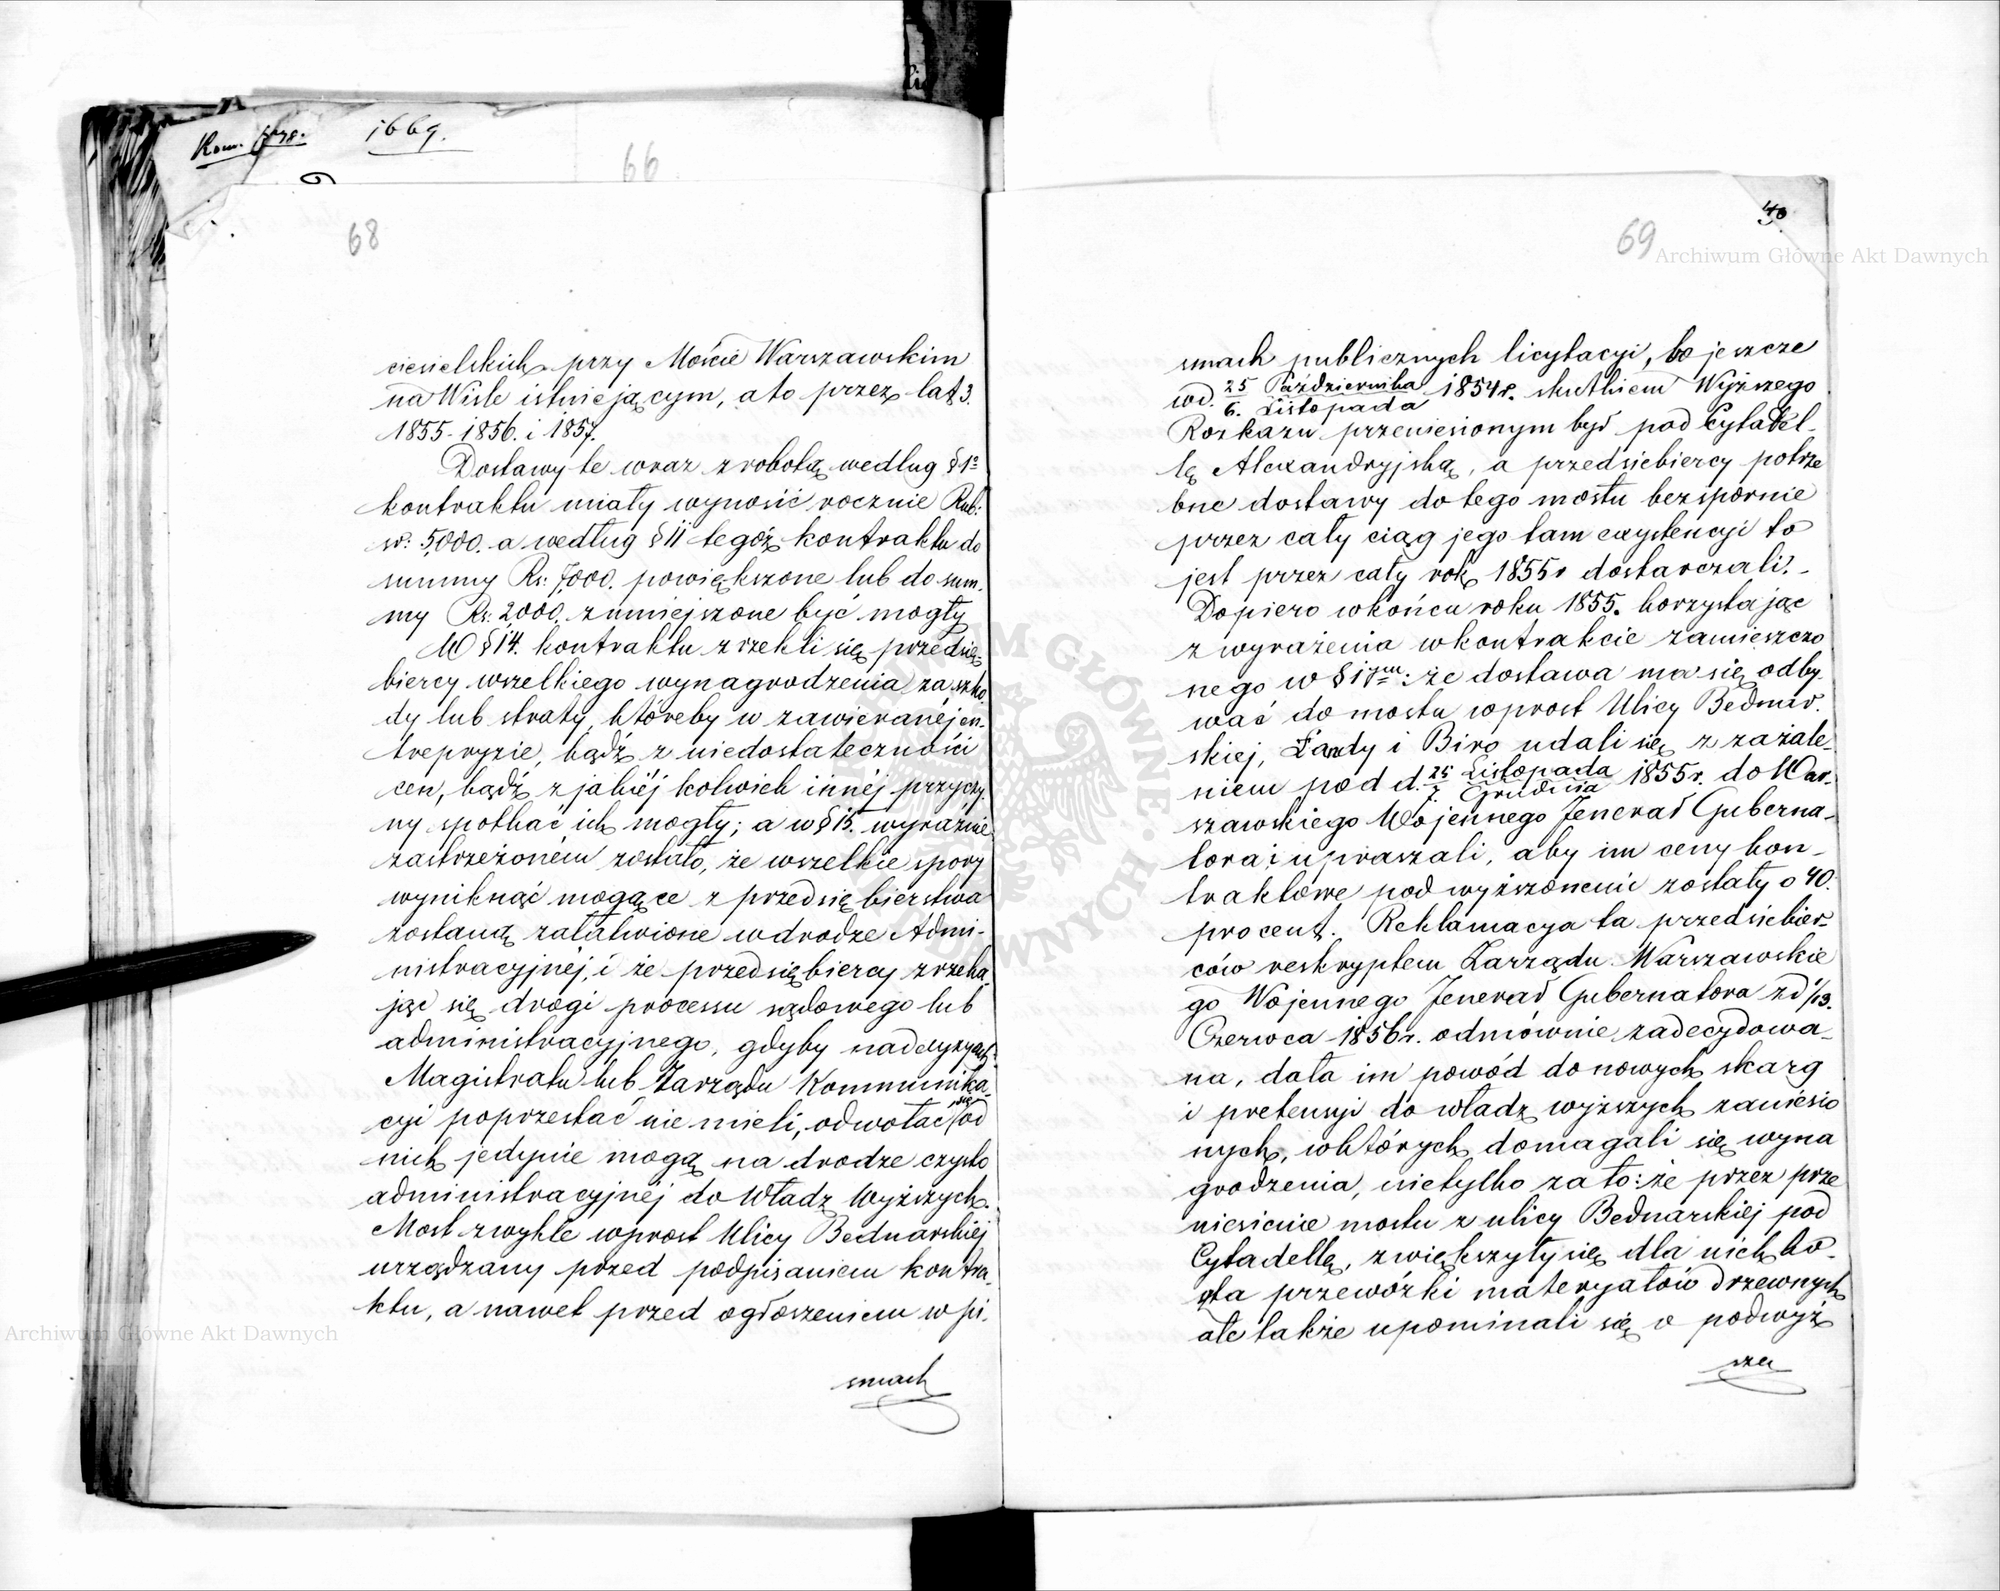 1669.
66
68
ciesielskich przy Moście Warszawskim
na Wiśle istniejącym, a to przez lat 3.
1855. 1856. i 1857.
Dostawy te wraz z robotą według § 1º
kontraktu miały wynosić rocznie Rub:
sr: 5,000. a według § 11 tegóż kontraktu do
summy Rs: 7,000. powiększone lub do sum-
my Rs: 2,000. zmniejszone być mogły
W § 14. kontraktu zrzekli się przedsię-
biercy wszelkiego wynagrodzenia za szko-
dy lub straty, któreby w zawieranéj en-
trepryzie, bądź z niedostateczności
cen, bądź z jakiéj kolwiek innéj przyczy-
ny spotkać ich mogły; a w § 15. wyraźnie
zastrzeżoném zostało, że wszelkie spory
wyniknąć mogące z przedsiębierstwa
zostaną załatwione w drodze Admi-
nistracyjnéj, i że przedsiębiercy zrzeka-
jąc się drogi processu sądowego lub
administracyjnego, gdyby na decyzyach
Magistratu lub Zarządu Kommunika-
cyi poprzestać nie mieli, odwołać się od
nich jedynie mogą na drodze czysto
administracyjnéj do Władz Wyższych.
Most zwykle wprost Ulicy Bednarskiéj
urządzany przed podpisaniem kontra-
ktu, a nawet przed ogłoszeniem w pi-
smach
40
69
smach publicznych licytacyi, bo jeszcze
w d. 25 Października / 6. Listopada 1854 r. skutkiem Wyższego
Rozkazu przeniesionym był pod Cytadel-
lę Alexandryjską, a przedsiebiercy potrze
bne dostawy do tego mostu bezspornie
przez cały ciąg jego tam exystencyi to
jest przez cały rok 1855 r dostarczali. -
Dopiero w końcu roku 1855. korzystając
z wyrażenia w kontrakcie zamieszczo
nego w § 1ym: że dostawa ma się odby-
wać do mostu wprost Ulicy Bednar-
skiej, Landy i Biro udali się z zażale-
niem pod d. 25 Listopada / 7. Grudnia 1855 r. do War-
szawskiego Wojennego Jenerał Guberna-
tora i upraszali, aby im ceny kon-
traktowe podwyższonemi zostały o 40.
procent. Reklamacya ta przedsiebier-
ców reskryptem Zarządu Warszawskie
go Wojennego Jenerał Gubernatora z d 1/13.
Czerwca 1856 r. odmównie zadecydowa-
na, dała im powód do nowych skarg
i pretensyi do władz wyższych zaniesio
nych, w których domagali się wyna
grodzenia, nietylko za to: że przez prze
niesienie mostu z ulicy Bednarskiéj pod
Cytadellę, zwiększyły się dla nich ko-
szta przewózki materyałów drzewnych
ale także upominali się o podwyż
sze
Archiwum Główne Akt Dawnych
Archiwum Główne Akt Dawnych